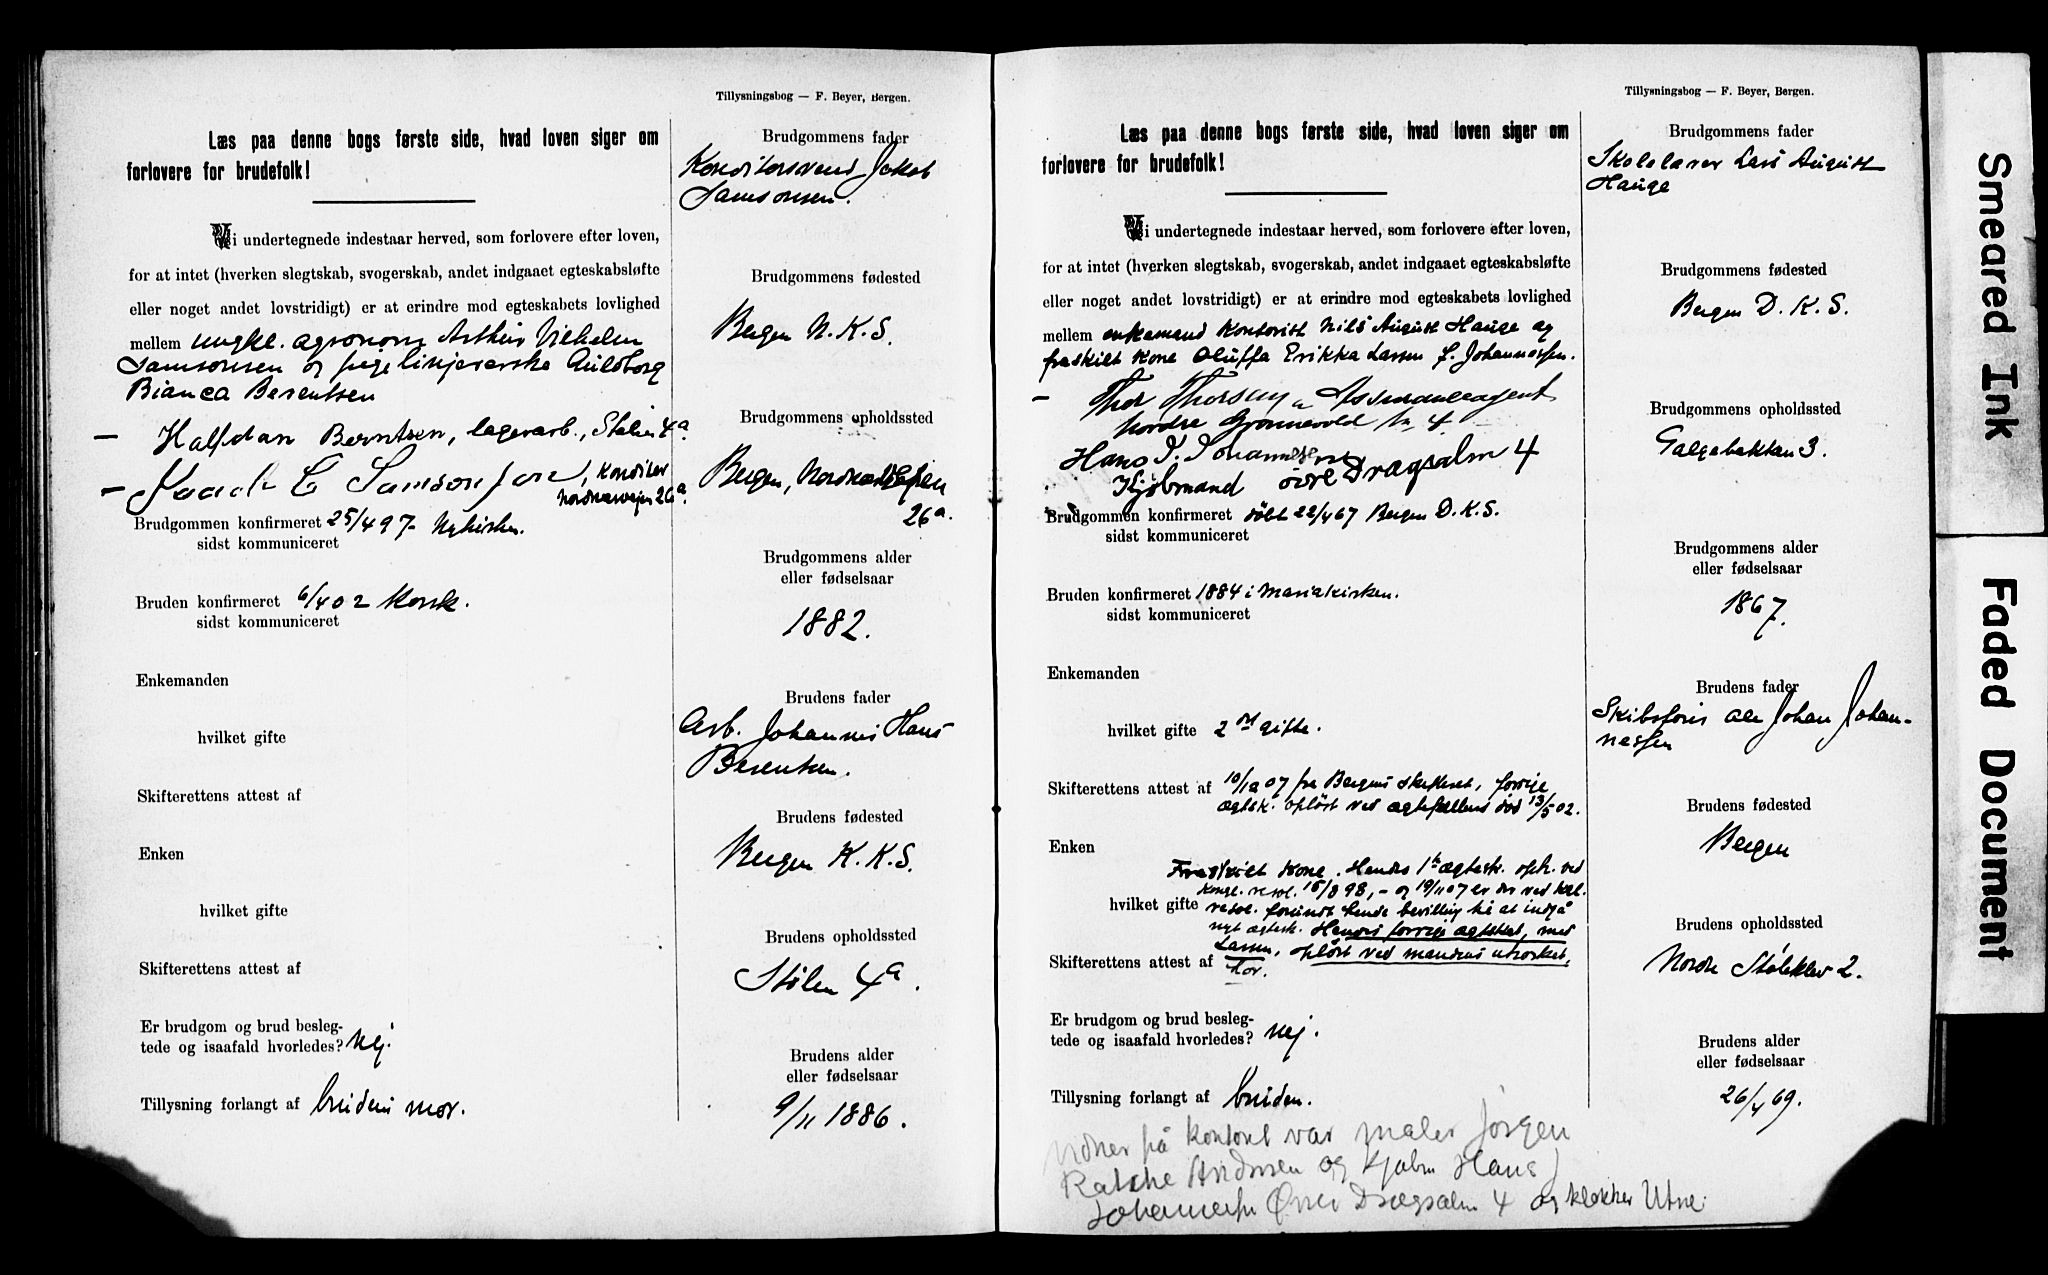 Tillysningsbog — F. Beyer, Bergen.
Læs paa denne bogs første side, hvad loven siger om
forlovere for brudefolk!
Vi undertegnede indestaar herved, som forlovere efter loven,
for at intet (hverken slegtskab, svogerskab, andet indgaaet egteskabsløfte
eller noget andet lovstridigt) er at erindre mod egteskabets lovlighed
mellem ungkl. agronom Arthur Vilhelm
Samsonsen og pige linjererske
Bianca Berentsen
— Halfdan Berntsen, lagerarb., Stølen 4a
— Samsonsen, konditor
Nordnæsveien 26a.
Brudgommen konfirmeret 25/4 97 Nykirken.
sidst kommuniceret
Bruden konfirmeret 6/4 02 Korsk.
sidst kommuniceret
Enkemanden
hvilket gifte
Skifterettens attest af
Enken
hvilket gifte
Skifterettens attest af
Er brudgom og brud besleg-
tede og isaafald hvorledes? Nej.
Tillysning forlangt af brudens mor.
Brudgommens fader
Konditorsvend Jakob
Samsonsen.
Brudgommens fødested
Bergen N. K. S.
Brudgommens opholdssted
Bergen, Nordnæsveien
26a.
Brudgommens alder
eller fødselsaar
1882.
Brudens fader
Arb. Johannes Hans
Berentsen.
Brudens fødested
Bergen K. K. S.
Brudens opholdssted
Stølen 4a.
Brudens alder
eller fødselsaar
9/11 1886.
Tillysningsbog — F. Beyer, Bergen.
Læs paa denne bogs første side, hvad loven siger om
forlovere for brudefolk!
Vi undertegnede indestaar herved, som forlovere efter loven,
for at intet (hverken slegtskab, svogerskab, andet indgaaet egteskabsløfte
eller noget andet lovstridigt) er at erindre mod egteskabets lovlighed
mellem enkemand kontorist Nils August Hauge og
fraskilt kone Oluffa Erikka Larsen f. Johannessen.
— Thor Assuranceagent
Nordre 4
Hans J. Johannessen
Kjøbmand øvre Dragsalm 4
Brudgommen konfirmeret døbt 22/4 67 Bergen D. K. S.
sidst kommuniceret
Bruden konfirmeret 1884 i Mariakirken.
sidst kommuniceret
Enkemanden
hvilket gifte 2det gifte.
Skifterettens attest af 10/12 07 fra Bergens skifteret, forrige
egtesk. opløst ved egtefællens død 13/5 02.
Enken
Fraskilt kone. Hendes 1ste egtesk. oph. ved
kongl. resol. 15/8 98, – og 19/11 07 er der ved kgl.
hvilket gifte resol. forundt hende bevilling til at indgå
nyt egtesk. Hendes forrige egteskab, med
Larsen, opløst ved mandens utroskab,
Skifterettens attest af hor.
Er brudgom og brud besleg-
tede og isaafald hvorledes? Nej.
Tillysning forlangt af bruden.
Vidner på kontoret var maler Jørgen
Andersen og kjøbm Hans J
Johannessen Øvre Drægsalm 4 og klokker Utne.
Brudgommens fader
Skolelærer Lars August
Hauge
Brudgommens fødested
Bergen D. K. S.
Brudgommens opholdssted
Galgebakken 3.
Brudgommens alder
eller fødselsaar
1867.
Brudens fader
Skibsfører Ole Johan Johan-
nessen
Brudens fødested
Bergen
Brudens opholdssted
Nordre Støleklev 2.
Brudens alder
eller fødselsaar
26/4 69.
Smeared Ink
Faded Document